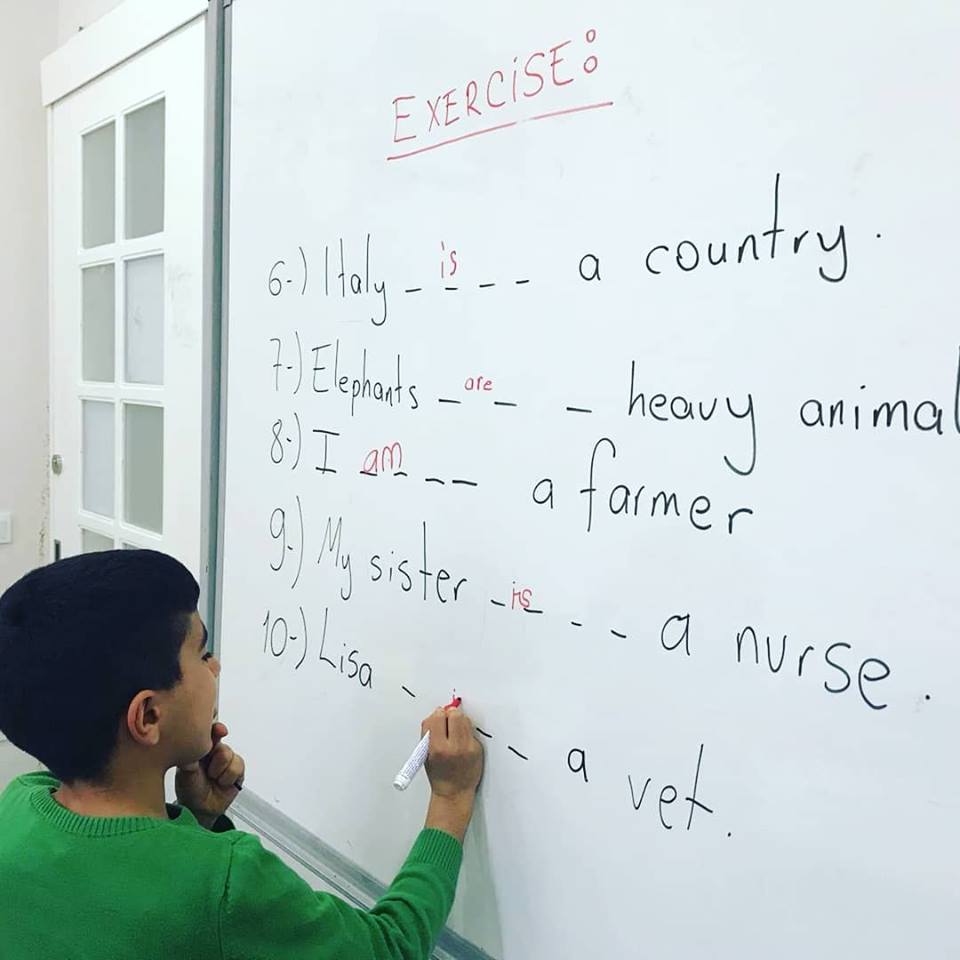 EXERCISE:
6-) Italy _ is _ _ a country.
7-) Elephants _ are _ _ heavy animal
8-) I am _ _ a farmer
9-) My sister _ is _ _ _ a nurse.
10-) Lisa _ i _ _ a vet.